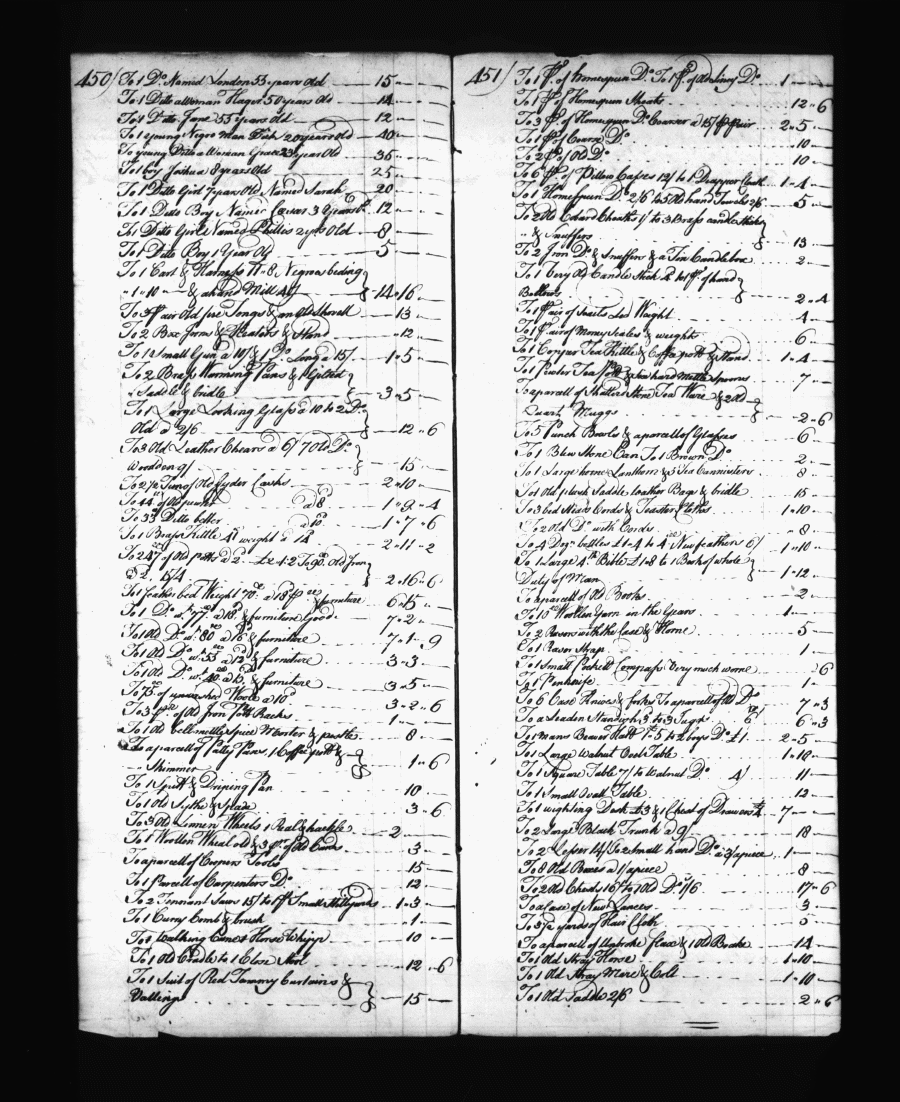 450/ To 1 Do. Named London 53 years old 15 " "
To 1 Ditto a Woman Hager 50 years old 14 " "
To 1 Ditto Jane 55 years old 12 " "
To 1 young Negro man Dick 20 years old 40 " "
To young Ditto a Woman Grace 23 year old 35 " "
To 1 boy Joshua 8 years old 25 " "
To 1 Ditto Girl 7 years Old Named Sarah 20
To 1 Ditto Boy Named Cæsar 3 Years 12 " "
To 1 Ditto Girl Named Phillis 2 yrs Old 8
To 1 Ditto Boy 1 Year Old 5
To 1 Cart & Harness 11 " 8, Negroes beding
" 1 " 10 " " & a hand Mill 40/ 14 " 16 "
To 3 Pair Old fire Tongs & an Old Shovell 13
To 2 Box Irons & Heaters & Stand 12
To 1 Small Gun a 10/ & 1 Do. Long a 15/ 1 " 5
To 2 Brass Warming Pans & 1 Quilted
" Saddle & bridle 3 " 5
To 1 Large Looking Glass a 10 to 2 Do.
Old a 2/6 12 " 6
To 3 Old Leather Chears a 6/ 7 Old Do.
Wooden 9/ 15
To 2 1/2 Tun of Old Cyder Casks 2 " 10
To 44 lb of Old pewter a 8d 1 " 9 " 4
To 33 lb Ditto better a 10d 1 " 7 " 6
To 1 Brass Kittle 41 weight a 2 " 11 " 2
To 247 of Old potts a 2 £2 " 1 " 2 To 90 Old Iron
a 2 15/4 2 " 16 " 6
To 1 feather bed Weight 70 lb a 18d furniture 6 " 15
To 1 Do. wt. 77 lb a 18 & furniture Good 7 " 2
To 1 Old Do. wt. 80 a 16 & furniture 7 " 1 " 9
To 1 Old Do. wt. 55 a 12 & furniture 3 " 3
To 1 Old Do. wt. 40 & furniture 3 " 5
To 75 of unwashed Wool a 10d 3 " 2 " 6
To 3 pr. of Old Iron Pott Racks 1
To 1 Old bell mettle Spice Morter & pestle 8
To a parcell of Patty Pans 1 Coffee pott &
Skimmer 1 " 6
To 1 Spitt & Driping Pan 10
To 1 Old Sythe & Spade 3 " 6
To 3 Old Linnen Wheels 1 Real & hackle 2
To 1 Woollen Wheal old & 3 pr. of Old Cards 3
To a parcell of Coopers Tooles 15
To 1 Parcell of Carpenters Do. 12
To 2 Tennant Saws 15/ to 1 Pr Small Stillyards 1 " 3
To 1 Curry Comb & brush 1
To 1 Walking Cane & Horse Whipp 10
To 1 Old Cradle to 1 Close Stool 12 " 6
To 1 Suit of Red Tammy Curtains &
Vallings 15
451/ To 1 Pr. of homespun Do. To 1 Pr of Old Do. 1
To 1 Pr. of Homespun Sheats 12 " 6
To 3 Pr. of Homespun Do. Coarser a 15/ pr pair 2 " 5
To 1 Pr of Coarse Do. 10
To 2 Pr of Old Do. 10
To 6 Pr of Pillow Cases 12/ to 1 Diapper Cloth 1 " 4
To 1 Homespun Do. 2/6 to 5 Old hand Towels 2/6 5
To 2 Old Cobard Cloaths 1/ to 3 Brass candle Sticks
" & Snuffers 13
To 2 Iron Do. & Snuffers & a Tin Candlebox 2
To 1 Very Old Candle Stick & to 1 Pr. of hand
Bellows 2 " 4
To 1 Pair of Scails Led Weight 4
To 1 Pair of Money Scales & weights 6
To 1 Copper Tea Kittle & Coffee pott & Stand 1 " 4
To 1 Pewter Tea Pott & hard Mettle spoons 7
To a parcell of Stone Tea Ware & 2 Old
Quart Muggs 2 " 6
To 5 Punch Bowls & a parcell of Glasses 6
To 1 Blew Stone Can To 1 Brown Do. 2
To 1 Large horne Lanthorn & 3 Tea Cannisters 8
To 1 Old plush Saddle leather Bags & bridle 15
To 3 bed Cords & Clothes 1 " 10
To 2 Old Do. with Cords 8
To 4 Dozn. bottles £1 " 4 to 4 lb New feathers 6/ 1 " 10
To 1 Large 4to Bible £1 " 8 to 1 Book of whole
Duty of Man 1 " 12
To a parcell of Old Books 2
To 10 lb Wollen Yarn in the Gears 1
To 2 Rasors with the Case & Horne 5
To 1 Rason Strap 1
To 1 Small Pockett Compass Very much worne 6
To 1 Penknife 1
To 6 Case Knives & forks To a parcell of Old Do. 7 " 3
To a Leaden Standish 3 to 3 Juggs 6 " 3
To 1 mans Beaver Hatt 1 " 5 to 2 boys Do. £1 2 " 5
To 1 Large Walnut Table 1 " 10
To 1 Square Table 7/ to Walnut Do. 4/ 11
To 1 Small Ovall Table 12
To 1 wrighting Desk £3 & 1 Chest of Drawers £4 7
To 2 Large Black Trunk a 9/ 18
To 2 14/ To 2 Small hand Do. a 3/ apiece 1
To 8 Old Boxes a 1/ apiece 8
To 2 Old Chests 16/ to 1 Old Do. 1/6 17 " 6
To a Case of New Lances 3
To 3 1/2 yards of Hair Cloth 5
To a parcell of unbroke flax & 1 Old Brake 14
To 1 Old Stray Horse 1 " 10
To 1 Old Stray Mare & Colt 1 " 10
To 1 Old Saddle 2/6 2 " 6